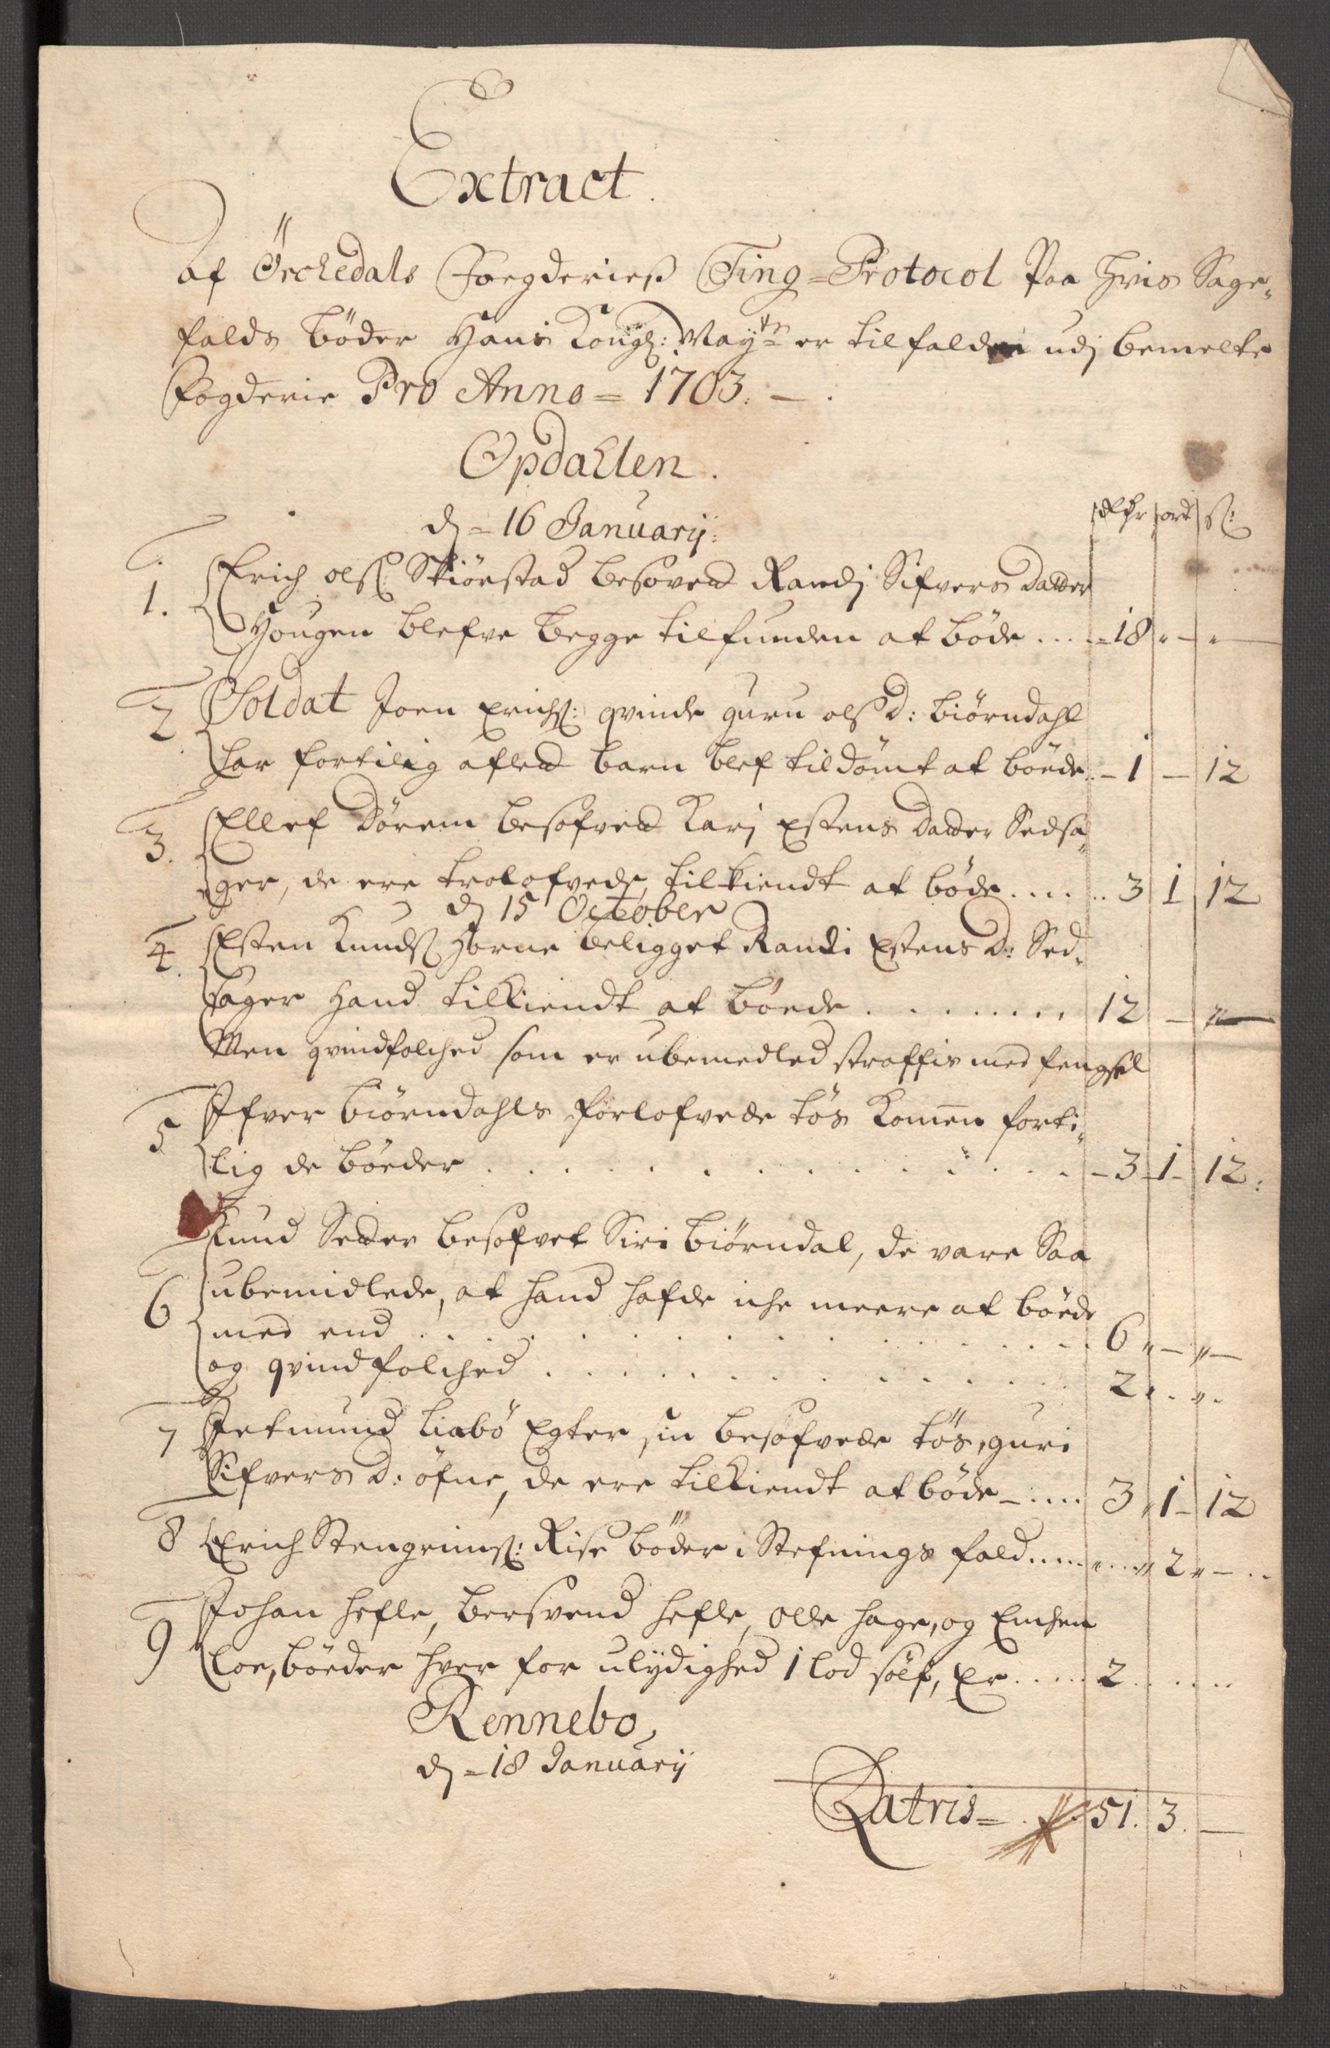 Extract.
Af Örchedals Foegderies Ting=Protocol Paa hvis Sage-
falds bøder Hans Kongl: Mayts er tilfalden udj bemelte
Fogderie Pro Anno = 1703. — .
Opdahlen.
d = 16 January: ort s:
1. Erich ols: Skiørstad besoved Randj Sifvers datter
Hougen blefve begge tilfunden at bøde .... -18 " — " —
2. Soldat Joen Erichs: qvinde guru ols d: biørndahl
har fortilig afled barn blef tildømt at bøede. - 1 — 12
3. Ellef Dørem besofved Karj Estens datter Sedsa-
ger, de ere trolofvede, tilkiendt at bøde ...... 3 1 12
d 15 October
4. Esten Knuds: Horne beligget Randi Estens D: Sed-
sager hand tilkiendt at bøede ........ 12 — "—
Men qvindfolched som er ubemedled straffis med fengsel
5 Ifver biørndahls forlofvede tøs Kommen forti-
lig de bøeder ............ - 3 - 1 - 12:
Knud Sæter besofvet Siri biørndal, de vare Saa
6 ubemidlede, at hand hafde iche meere at bøede
med end ............ 6 " — " —
og qvindfolched ........... 2 " . " .
7 Jetmund Liabø Egter sin besofvede tøs, guri
Sifvers d: øfne, de ere tilkiendt at bøde - .... 3 " 1 - 12
8 Erich Stengrims: Rise bøder i Stefnings fald ...... " 2 " — ..
9 Johan hefle, bersvend hefle, olle hage, og Emhen
loe, bøeder hver for ulydighed 1 lod sølf, Er ..... 2 .....
Rennebo,
d = 18 January
Latris = 51. 3. —